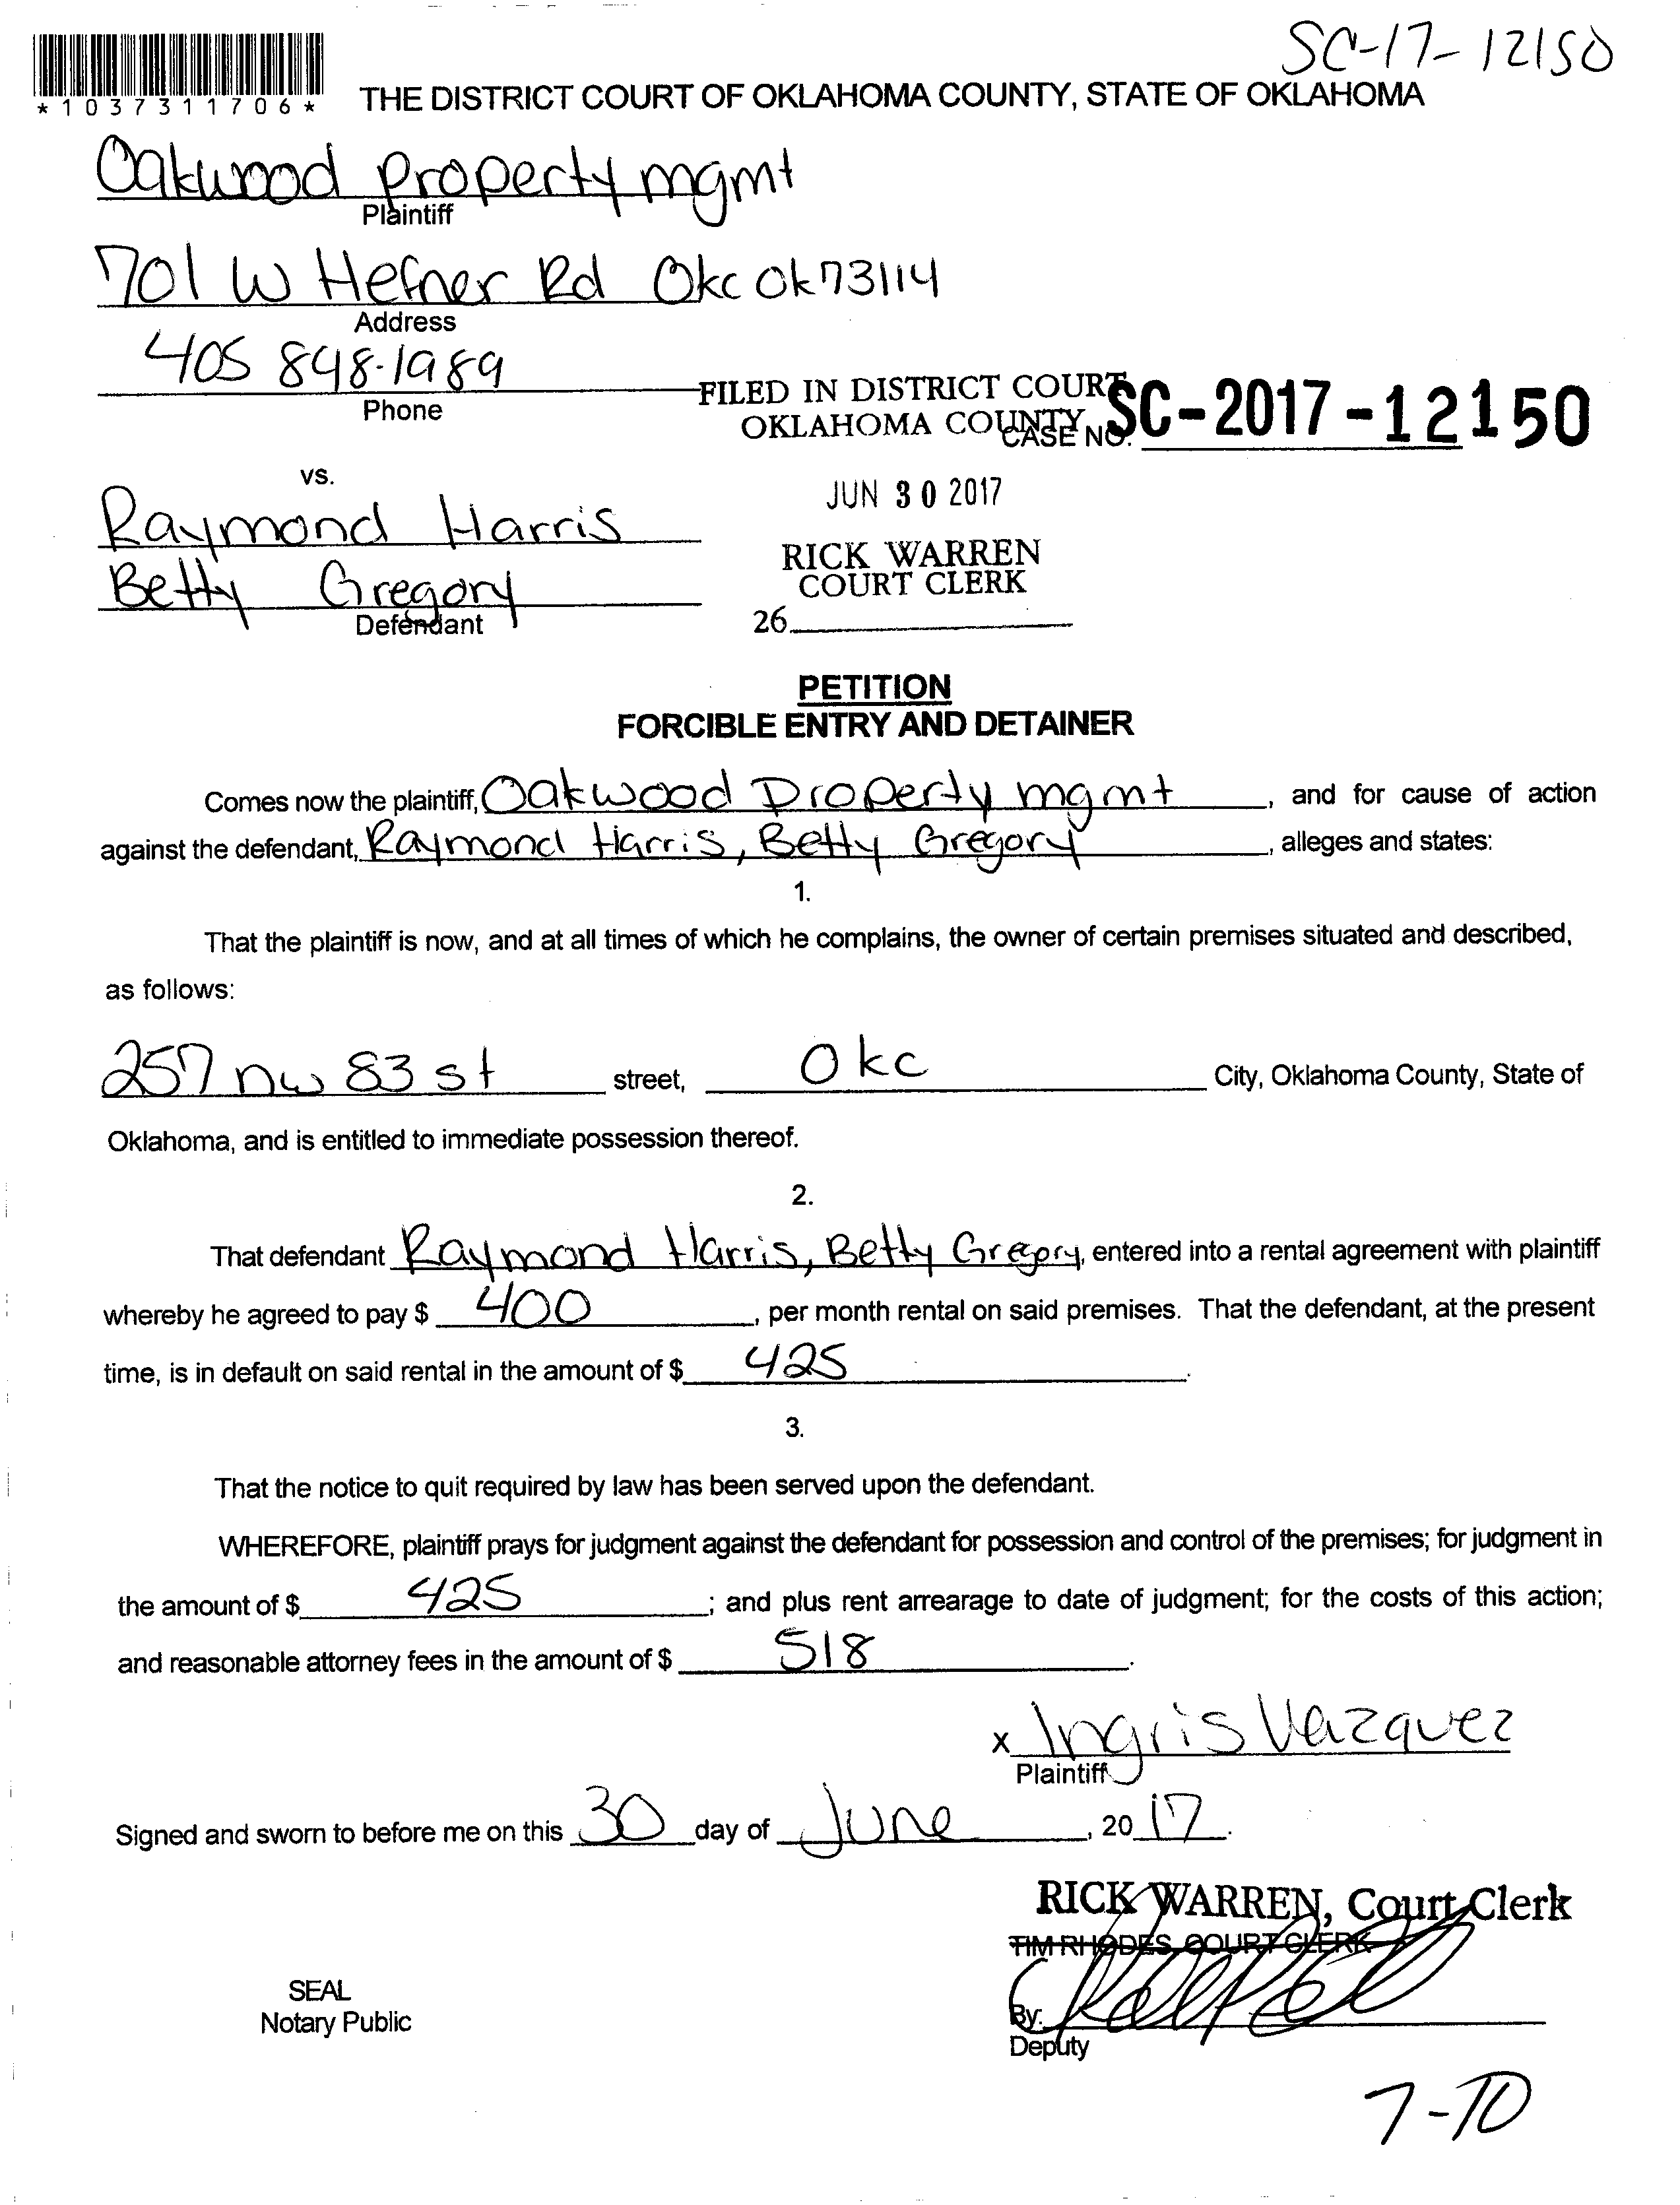 SC-17-12150
*1037311706*
THE DISTRICT COURT OF OKLAHOMA COUNTY, STATE OF OKLAHOMA
Oakwood property mgmt
Plaintiff
701 W Hefner Rd Okc Ok 73114
Address
405 848-1989
Phone
FILED IN DISTRICT COURT
OKLAHOMA COUNTY
CASE NO. SC-2017-12150
vs.
JUN 30 2017
Raymond Harris
RICK WARREN
COURT CLERK
Betty Gregory
Defendant
26
PETITION
FORCIBLE ENTRY AND DETAINER
Comes now the plaintiff, Oakwood Property mgmt, and for cause of action
against the defendant, Raymond Harris, Betty Gregory, alleges and states:
1.
That the plaintiff is now, and at all times of which he complains, the owner of certain premises situated and described,
as follows:
257 nw 83 st street, Okc City, Oklahoma County, State of
Oklahoma, and is entitled to immediate possession thereof.
2.
That defendant Raymond Harris, Betty Gregory, entered into a rental agreement with plaintiff
whereby he agreed to pay $ 400, per month rental on said premises. That the defendant, at the present
time, is in default on said rental in the amount of $ 425.
3.
That the notice to quit required by law has been served upon the defendant.
WHEREFORE, plaintiff prays for judgment against the defendant for possession and control of the premises; for judgment in
the amount of $ 425; and plus rent arrearage to date of judgment; for the costs of this action;
and reasonable attorney fees in the amount of $ 518.
x Ingris Vazquez
Plaintiff
Signed and sworn to before me on this 30 day of June, 2017.
RICK WARREN, Court Clerk
TIM RHODES, COURT CLERK
SEAL
Notary Public
By:
Deputy
7-10